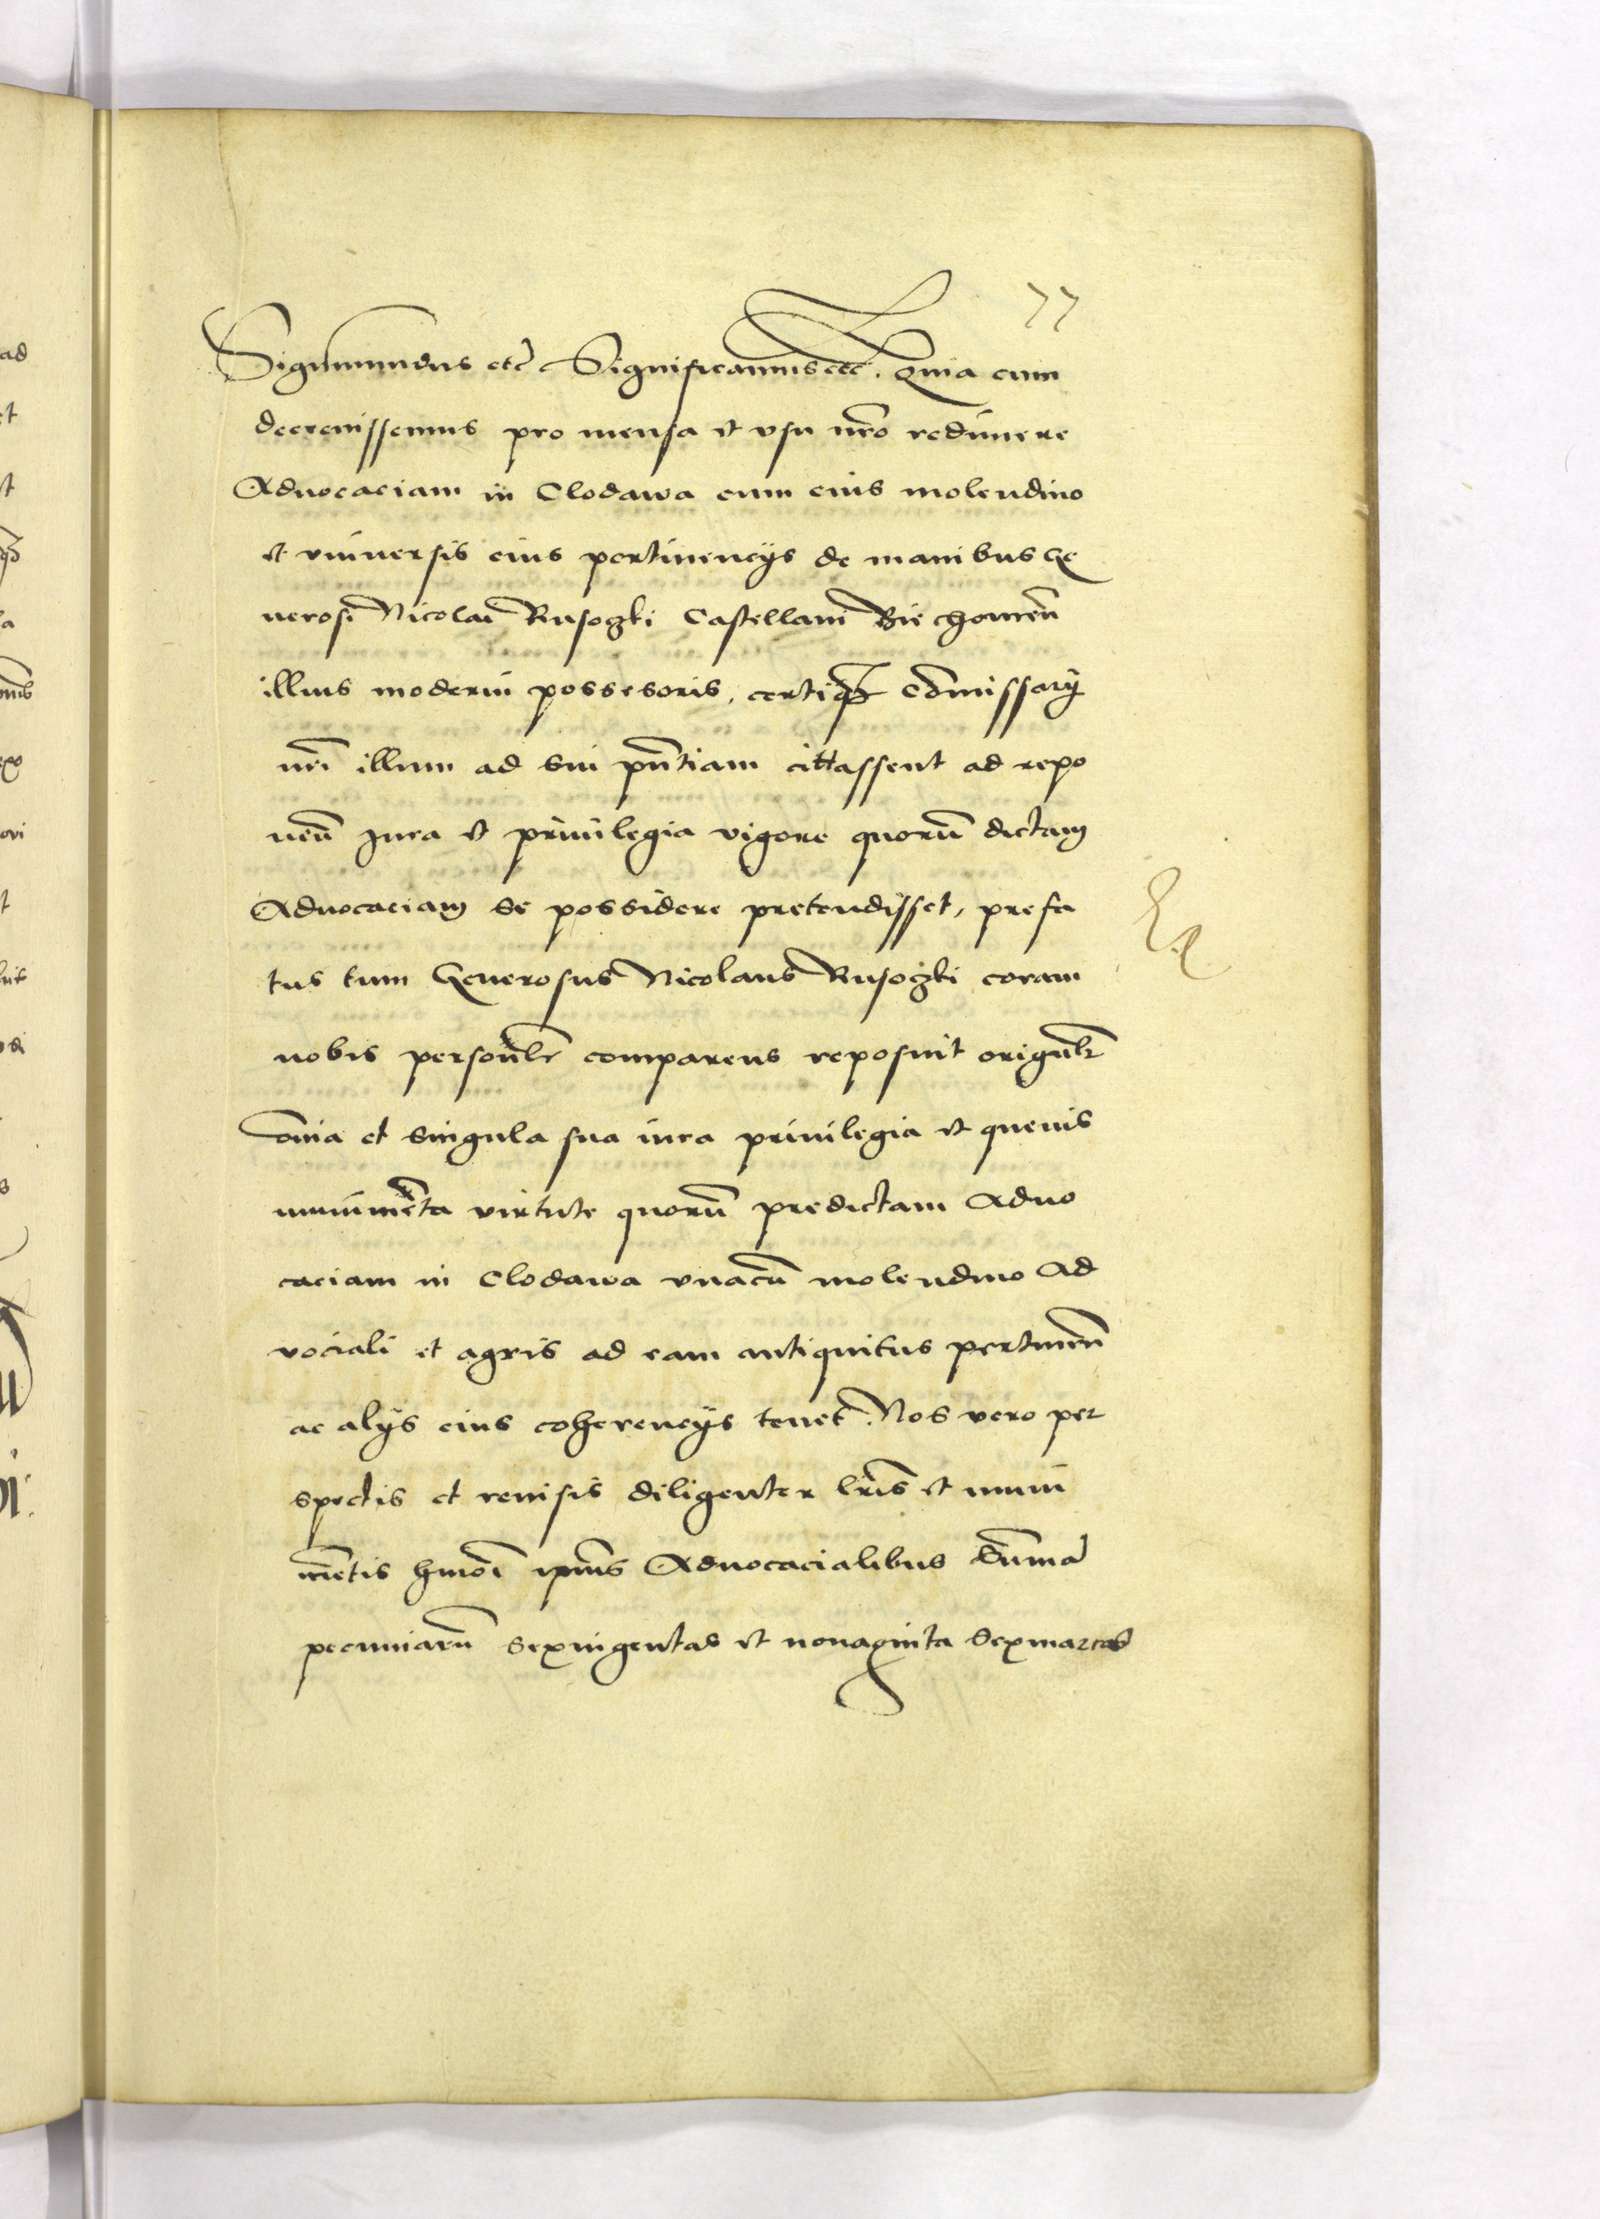 77
Sigismundus etc Significamus etc. Quia cum
decrevissemus pro mensa et vsu nro redimere
Aduocaciam in Clodawa cum eius molendino
et vniuersis eius pertinencijs de manibus Ge
nerosi Nicolai Rusoczki Castellani Biechouien
illius moderni possesoris, certiq3 comissarij
nri illum ad sui pntiam cittassent ad repo
nen Iura et priuilegia vigore quoru dictam
Aduocaciam se possidere pretendisset, prefa
tus tum Generosus Nicolaus Rusoczki coram
nobis personlr comparens reposuit originlr
omia et singula sua iura priuilegia et queuis
munimeta virtute quoru predictam Aduo
caciam in Clodawa vnacu molendino Ad
vociali et agris ad eam antiquitus pertinen
ac alijs eius coherencijs tenet. Nos vero per
spectis et reuisis diligenter lris et muni
metis hmoi ipius Aduocacialibus Summa
pecuniaru sexingentas et nonaginta sex marcas